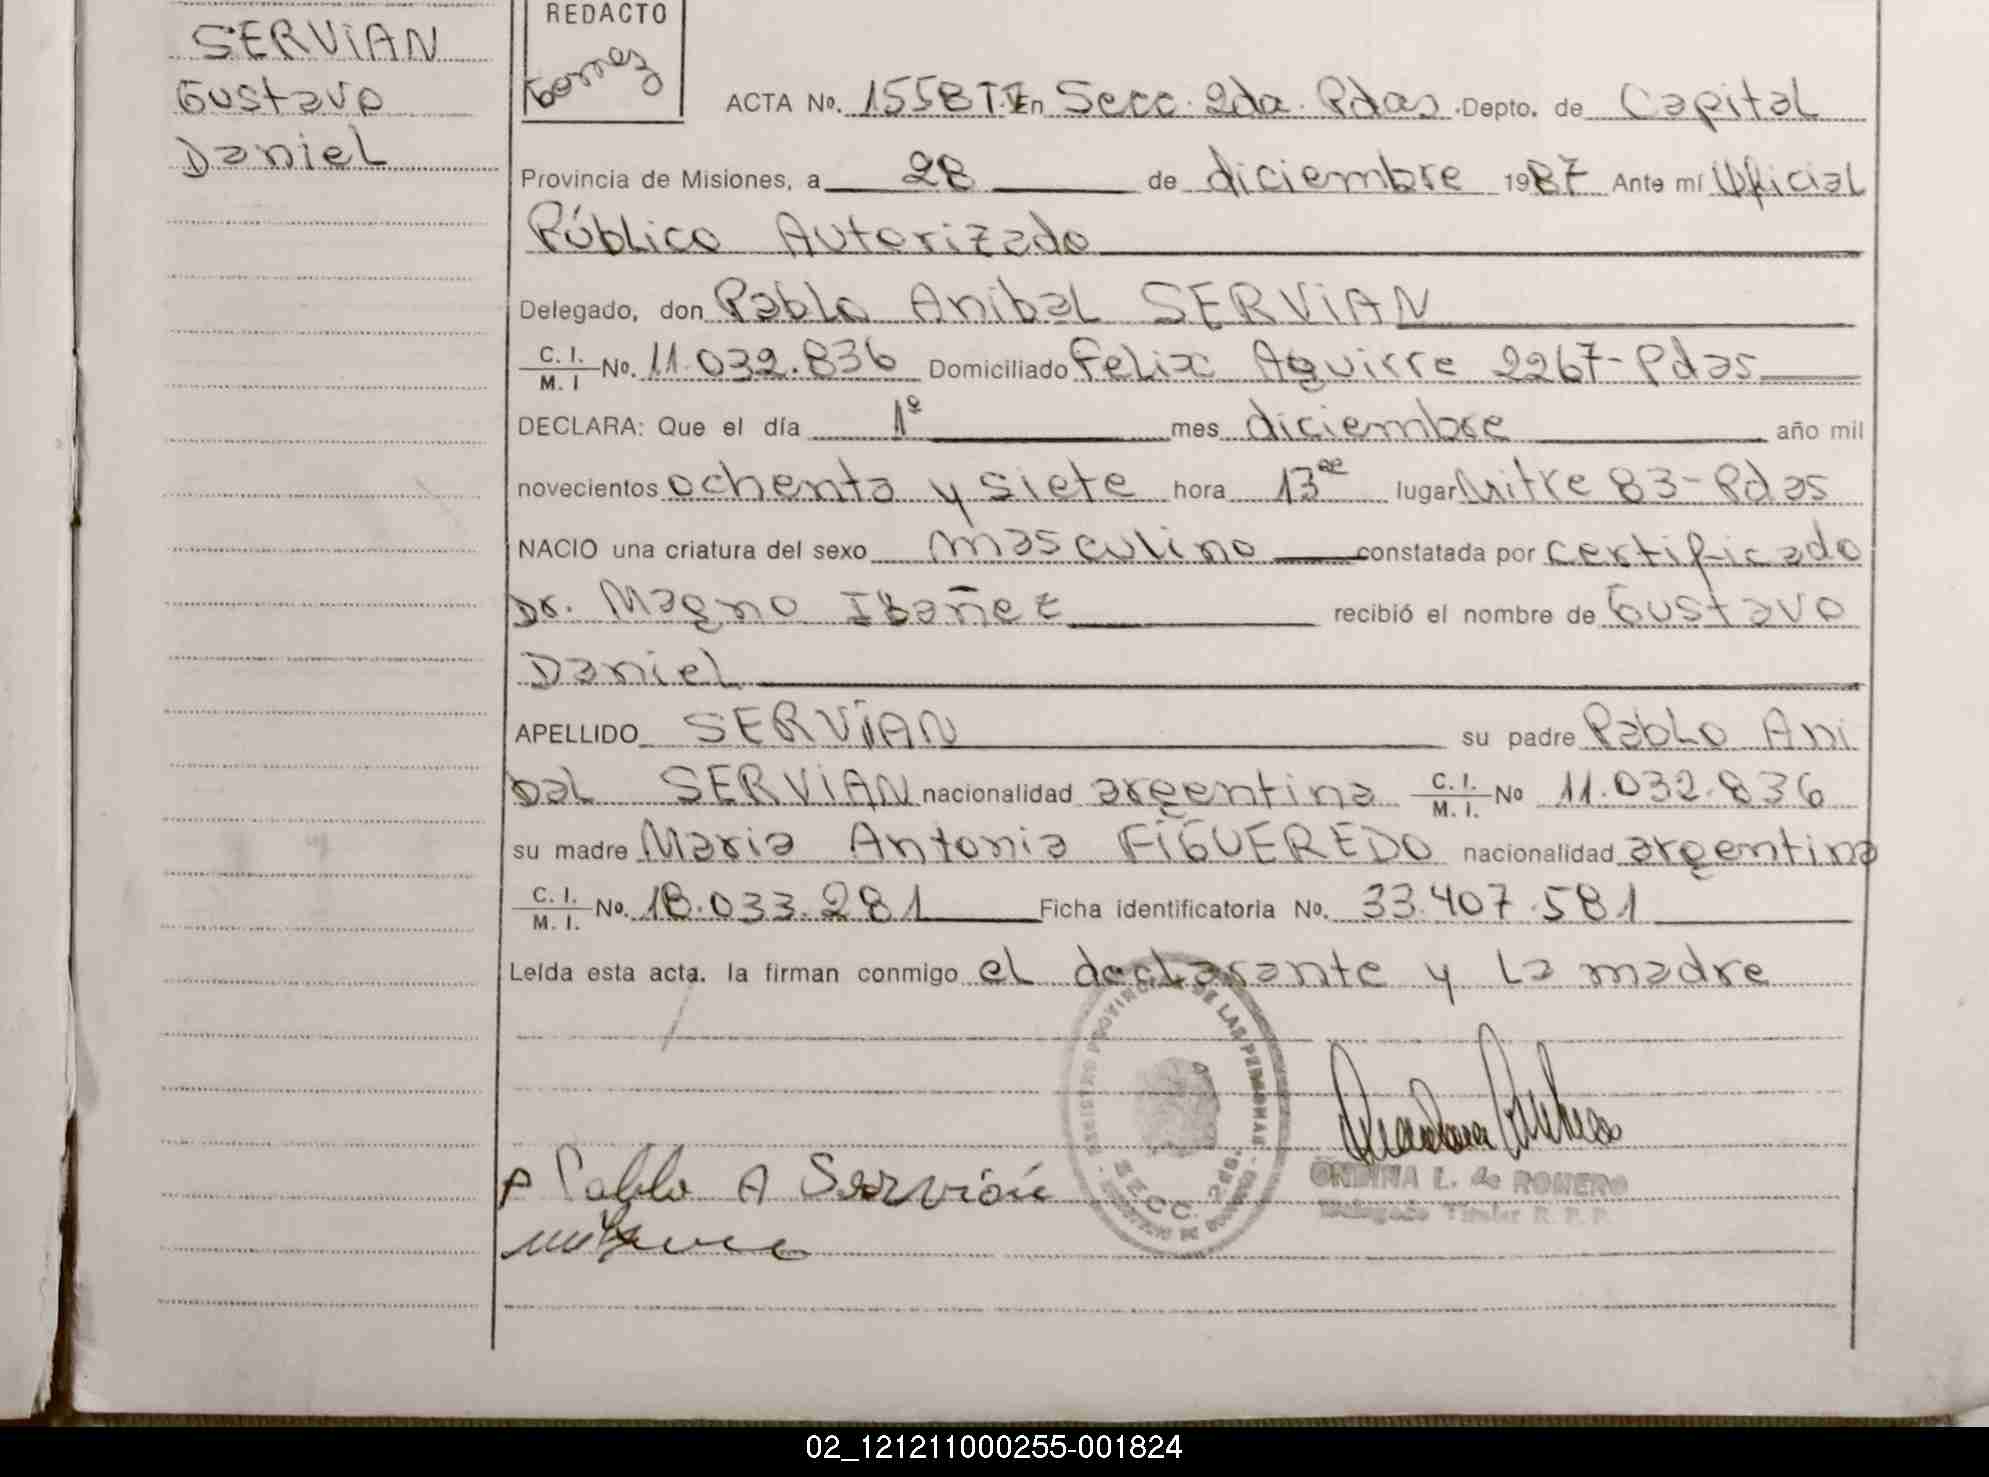 SERVIAN
Gustavo
Daniel
REDACTO
Gomez
ACTA No. 1558 T.V En Secc. 2da. Pdas. Depto. de Capital
Provincia de Misiones, a 28 de diciembre 1987 Ante mí Oficial
Público Autorizado
Delegado, don Pablo Anibal SERVIAN
C. I. / M. I No. 11.032.836 Domiciliado Felix Aguirre 2267-Pdas
DECLARA: Que el día 1º mes diciembre año mil
novecientos ochenta y siete hora 13 lugar Mitre 83-Pdas
NACIO una criatura del sexo masculino constatada por certificado
Dr. Magno Ibañez recibió el nombre de Gustavo
Daniel
APELLIDO SERVIAN su padre Pablo Ani
bal SERVIAN nacionalidad argentina C. I. / M. I. No 11.032.836
su madre Maria Antonia FIGUEREDO nacionalidad argentina
C. I. / M. I. No. 18.033.281 Ficha identificatoria No. 33.407.581
Leída esta acta. la firman conmigo el declarante y la madre
REGISTRO PROVINCIAL DE LAS PERSONAS
SECC. 2da.
Pablo A Servián
ONDINA L. de ROMERO
Delegado Titular R. P. P.
02_121211000255-001824